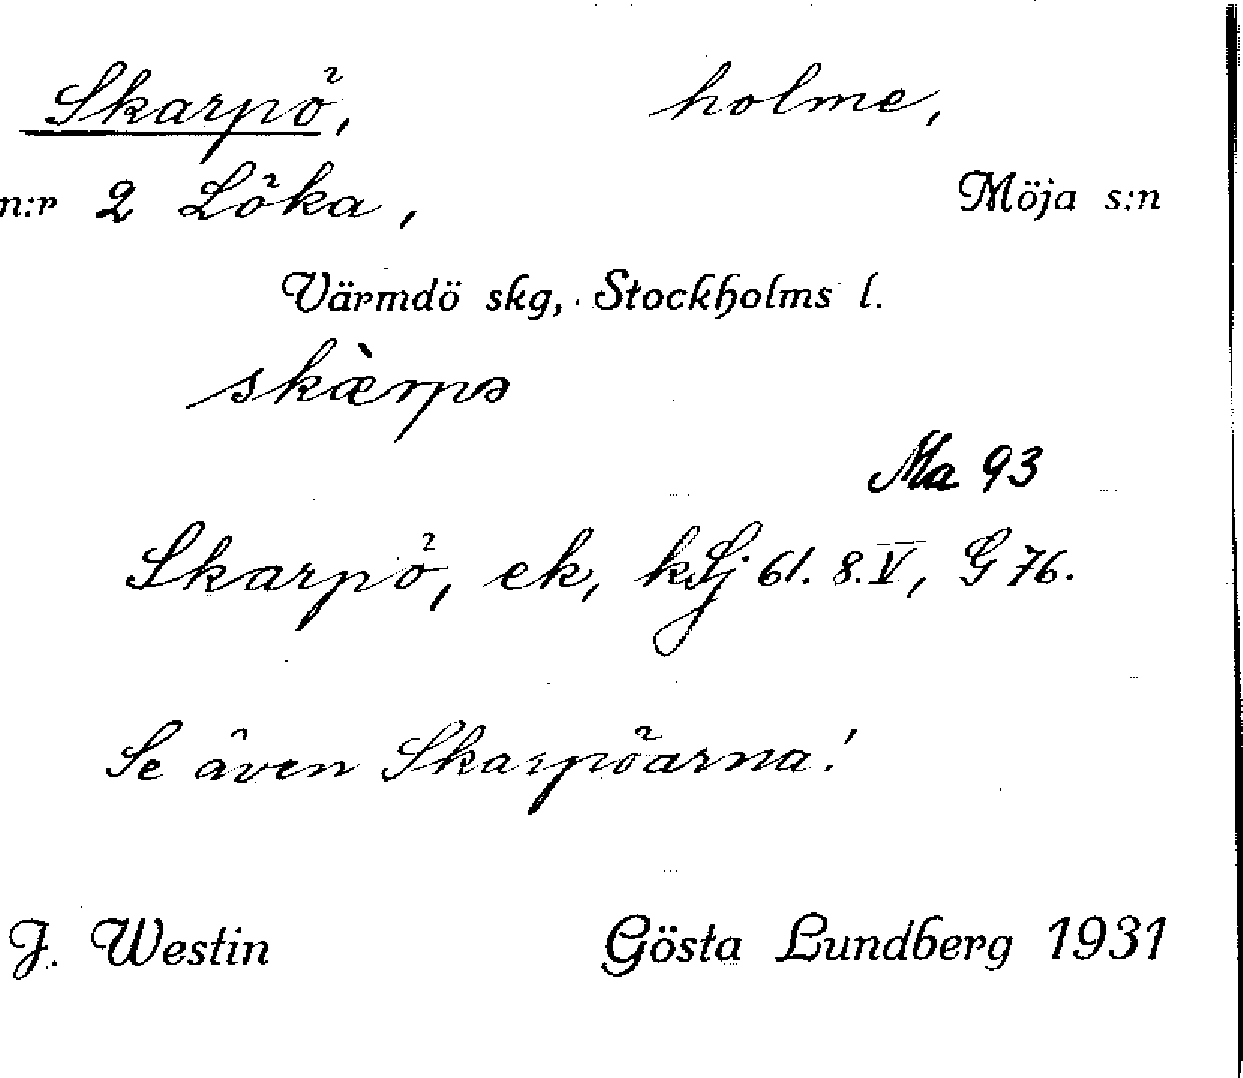 Skarpö, holme,
n:r 2 Löka, Möja s:n
Värmdö skg, Stockholms l.
skæ̀rpə
Ma 93
Skarpö, ek, kSj 61. 8.V, G 76.
Se även Skarpöarna!
J. Westin Gösta Lundberg 1931